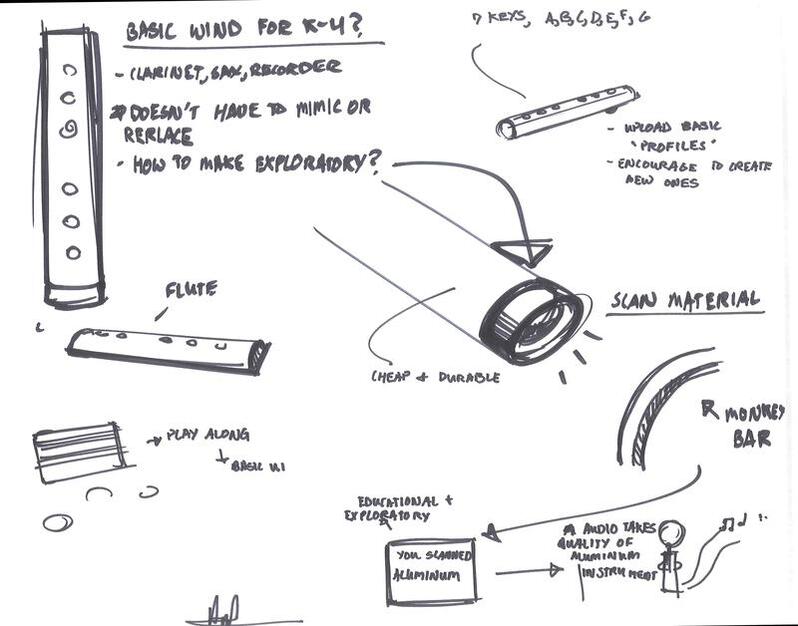 BASIC WIND FOR K-4?
- CLARINET, SAX, RECORDER
DOESN'T HAVE TO MIMIC OR
REPLACE
- HOW TO MAKE EXPLORATORY?
7 KEYS, A,B,C,D,E,F,G
- UPLOAD BASIC
"PROFILES"
- ENCOURAGE TO CREATE
NEW ONES
FLUTE
SCAN MATERIAL
CHEAP + DURABLE
MONKEY
BAR
PLAY ALONG
BASIC UI
EDUCATIONAL +
EXPLORATORY
YOU SCANNED
ALUMINUM
AUDIO TAKES
QUALITY OF
ALUMINUM
INSTRUMENT